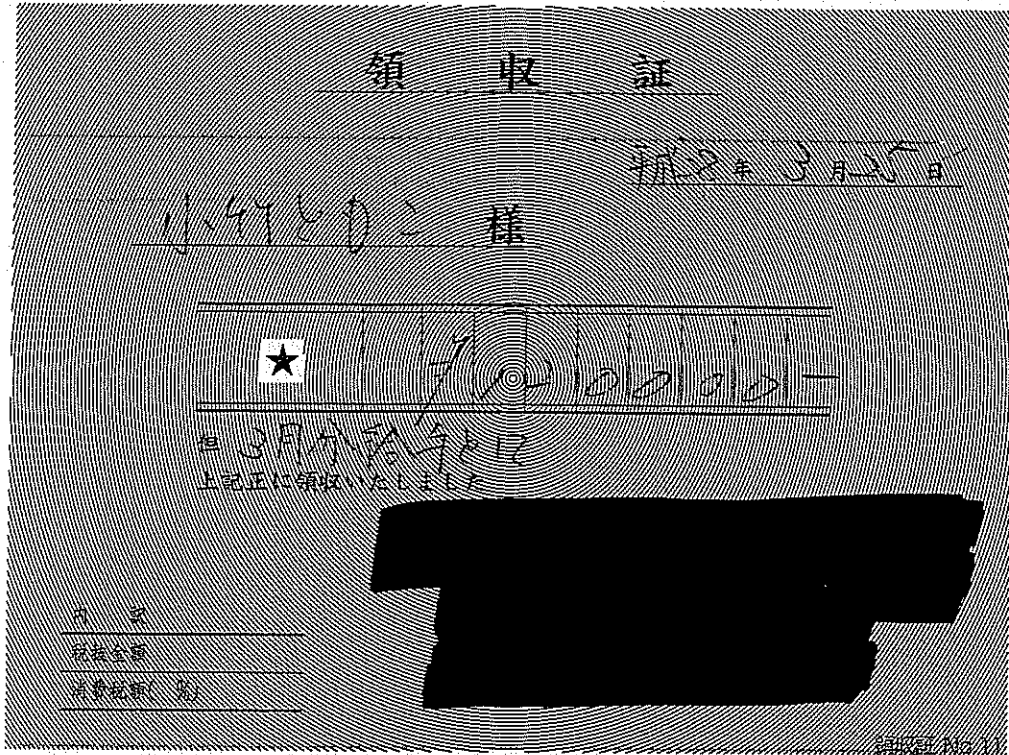 領収証
平成28年3月25日
小竹ともこ 様
★ ¥120000-
但 3月分給与として
上記正に領収いたしました
内訳
税抜金額
消費税額( %)